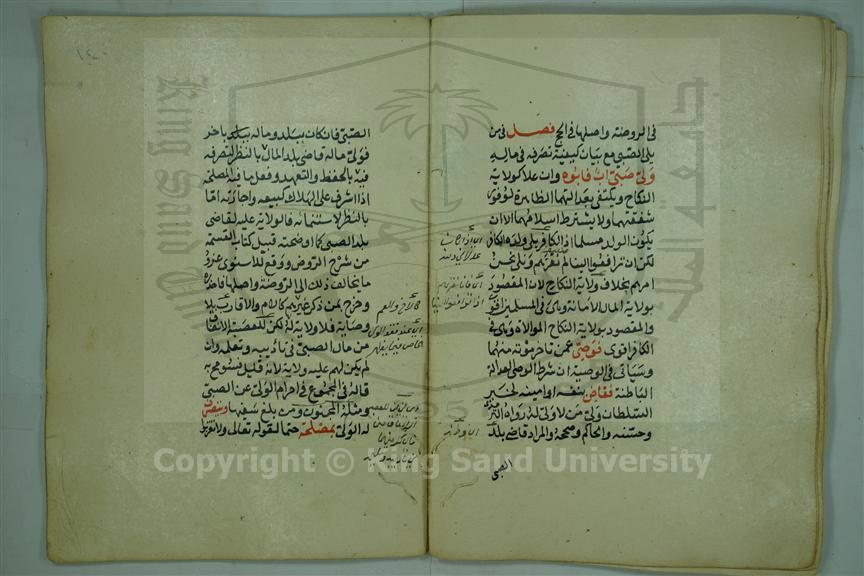 في الروضة واصلها في الحج فصل فيمن
يلي الصبي مع بيان كيفية تصرفه في ماله
ولي صبي اب فابوه وان علا كولاية
النكاح ويكتفي بعدالتهما الظاهرة لوفور
شفقتهما ولا يشترط اسلامهما الا ان
يكون الولد مسلما اذ الكافر يلي ولده الكافر
لكن ان ترافعوا الينا لم نقرهم ونلي نحن
امرهم بخلاف ولاية النكاح لان المقصود
بولاية المال الامانة وهي في المسلم اقوى
والمقصود بولاية النكاح الموالاة وهي في
الكافر اقوى فوصي عمن تاخر موته منهما
وسياتي في الوصية ان شرط الوصي العدالة
الباطنة فقاض بنفسه او امينه لخبر
السلطان ولي من لا ولي له رواه الترمذي
وحسنه والحاكم وصححه والمراد قاضي بلد
الصبي
الصبي فان كان ببلد وماله ببلد باخر
فولي ماله قاضي بلد المال بالنظر لتصرفه
فيه بالحفظ والتعهد وفعل ما فيه المصلحة
اذا اشرف على الهلاك كبيعه واجارته اما
بالنظر لاستنمائه فالولاية عليه لقاضي
بلد الصبي كما اوضحته قبيل كتاب القسمة
من شرح الروض ووقع للاسنوي عزو
ما يخالف ذلك الى الروضة واصلها فاحذره
وخرج بمن ذكر غيرهم كالام والاقارب بلا
وصاية فلا ولاية لهم لكن للعصبة الانفاق
من مال الصبي في تاديبه وتعليمه وان
لم يكن لهم عليه ولاية لانه قليل فسومح به
قاله في المجموع في احرام الولي عن الصبي
ومثله المجنون ومن بلغ سفيها ويتصرف
له الولي بمصلحة حتما لقوله تعالى ولا تقربوا
كالاخ والعم
Copyright © King Saud University
King Saud University
جامعة الملك سعود
1957
١٤٠